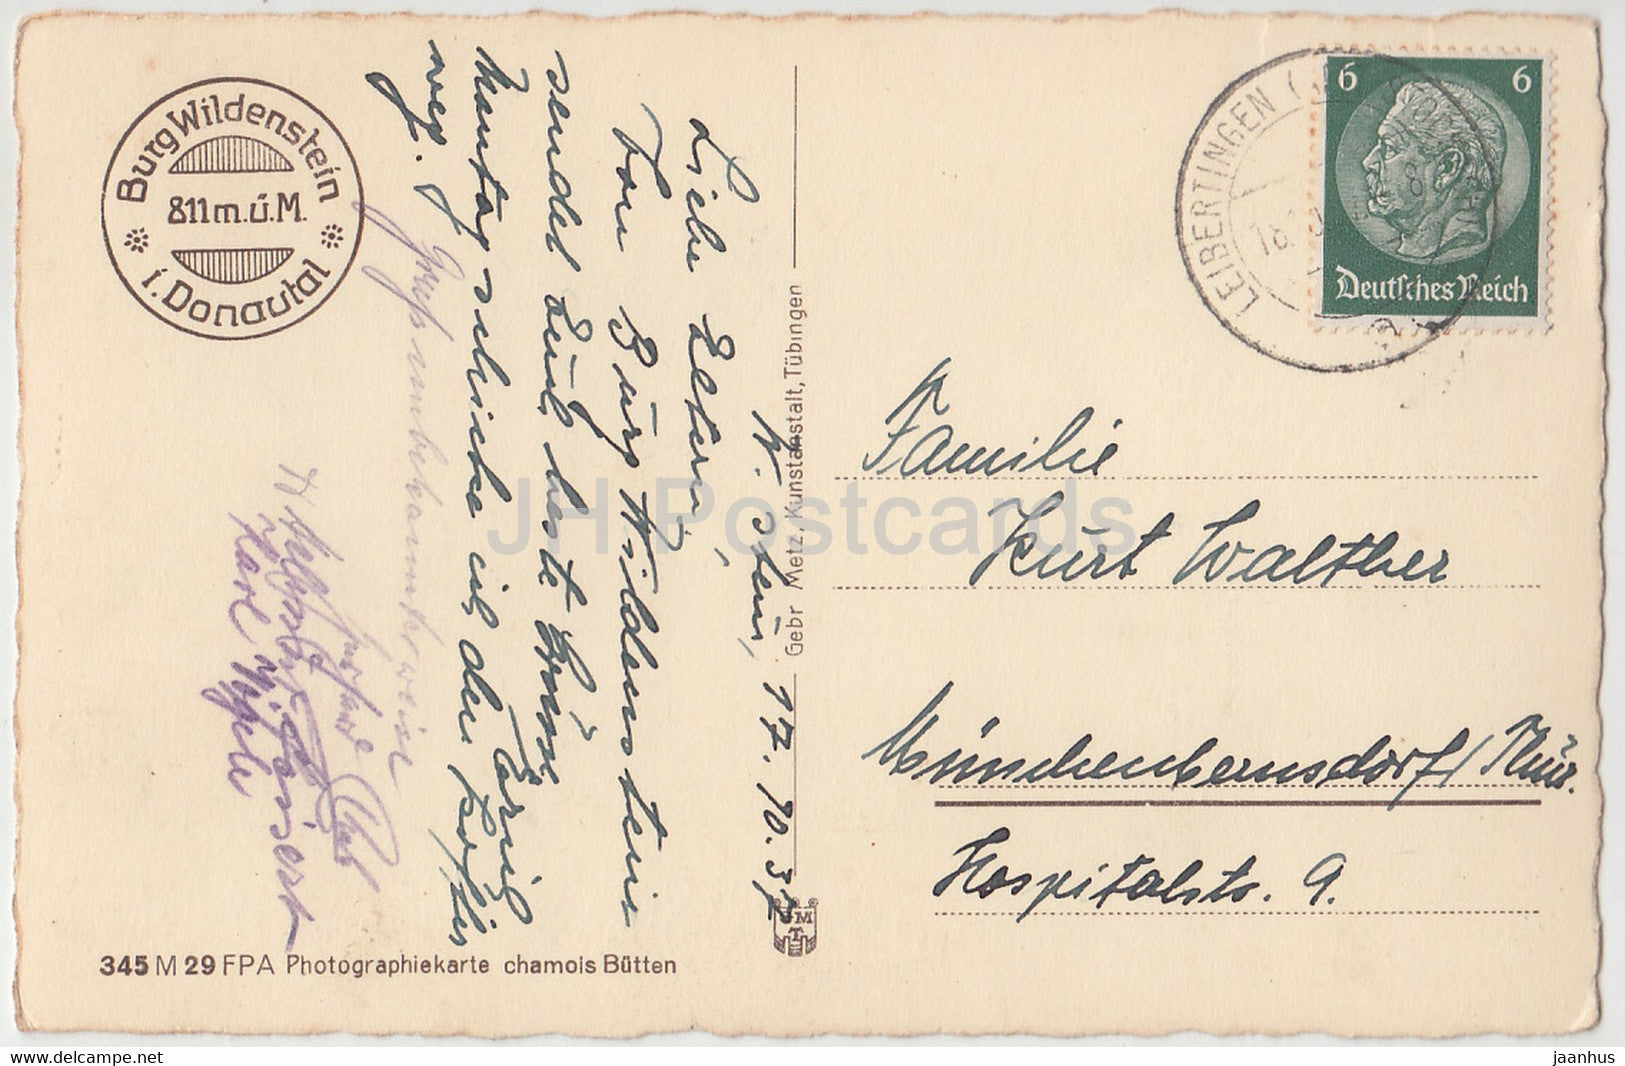 Burg Wildenstein
811 m.ü.M.
i. Donautal
W. stein, 17. 10. 37
Liebe Eltern,
Von Burg Wildenstein
sendet Euch beste Grüße
Erich
Montag schicke ich den
weg.
Gruß unbekannterweise
Karl
Gebr Metz, Kunstanstalt, Tübingen
MT
345 M 29 FPA Photographiekarte chamois Bütten
LEIBERTINGEN
18.
6 6
Deutsches Reich
Familie
Kurt Walther
Münchenbernsdorf/Thür.
Hospitalstr. 9.
JH Postcards
www.delcampe.net
jaanhus